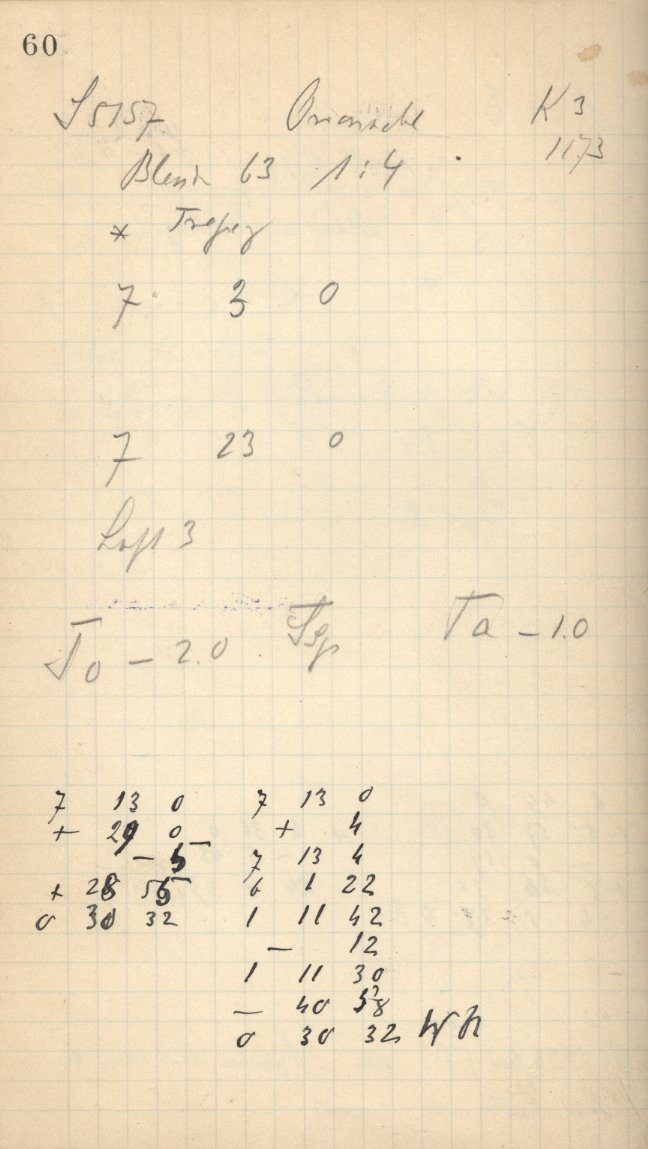 60
S 5157 Orionnebel K 3
1173
Blende 63 1:4
* Trapez
7 3 0
7 23 0
Luft 3
To -2.0 Ta -1.0
7 13 0 7 13 0
+ 29 0 + 4
- 5 7 13 4
+ 28 55 6 1 22
0 30 32 1 11 42
- 12
1 11 30
- 40 58
0 30 32